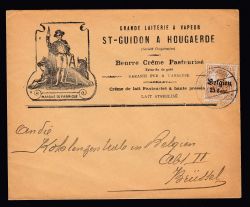 GRANDE LAITERIE A VAPEUR
ST-GUIDON A HOUGAERDE
(Société Coopérative)
Beurre Crême Pasteurisé
Extra-fin de goût
GARANTI PUR A L'ANALYSE
Crême de lait Pasteurisée à haute pression
LAIT STÉRILISÉ
MARQUE DE FABRIQUE
Belgien
25 Cent.
An die
Kohlenzentrale in Belgien
Abt. II
Brüssel